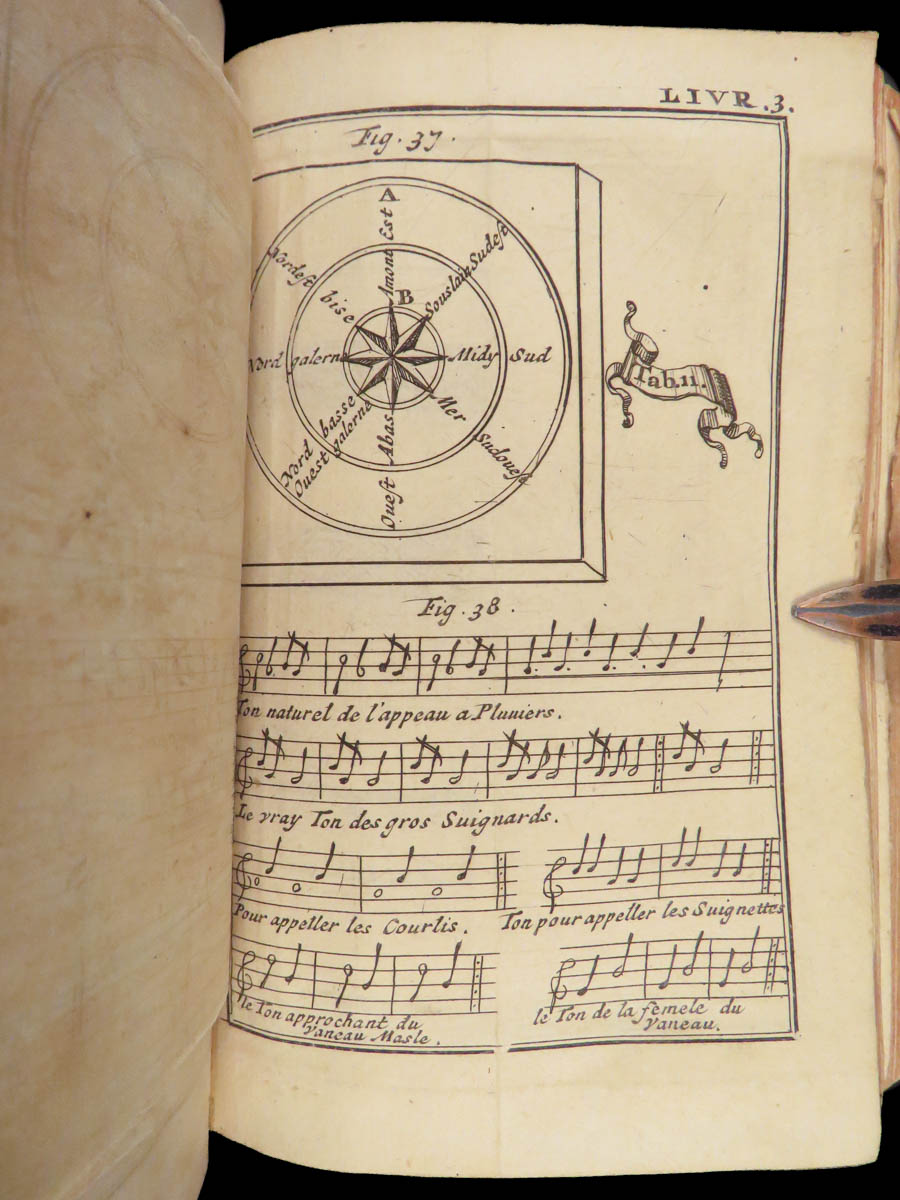 LIVR.3.
Fig. 37.
A
Amont Est
B
Souslain Sudest
Midy Sud
Mer Sudouest
Abas Ouest
basse galerne
Nord Ouest
Nord galerne
Nordest bise
Tab.11.
Fig. 38.
Ton naturel de l'appeau a Pluuiers.
Le vray Ton des gros Suignards.
Pour appeller les Courlis.
Ton pour appeller les Suignettes
le Ton approchant du
Vaneau Masle.
le Ton de la femele du
Vaneau.